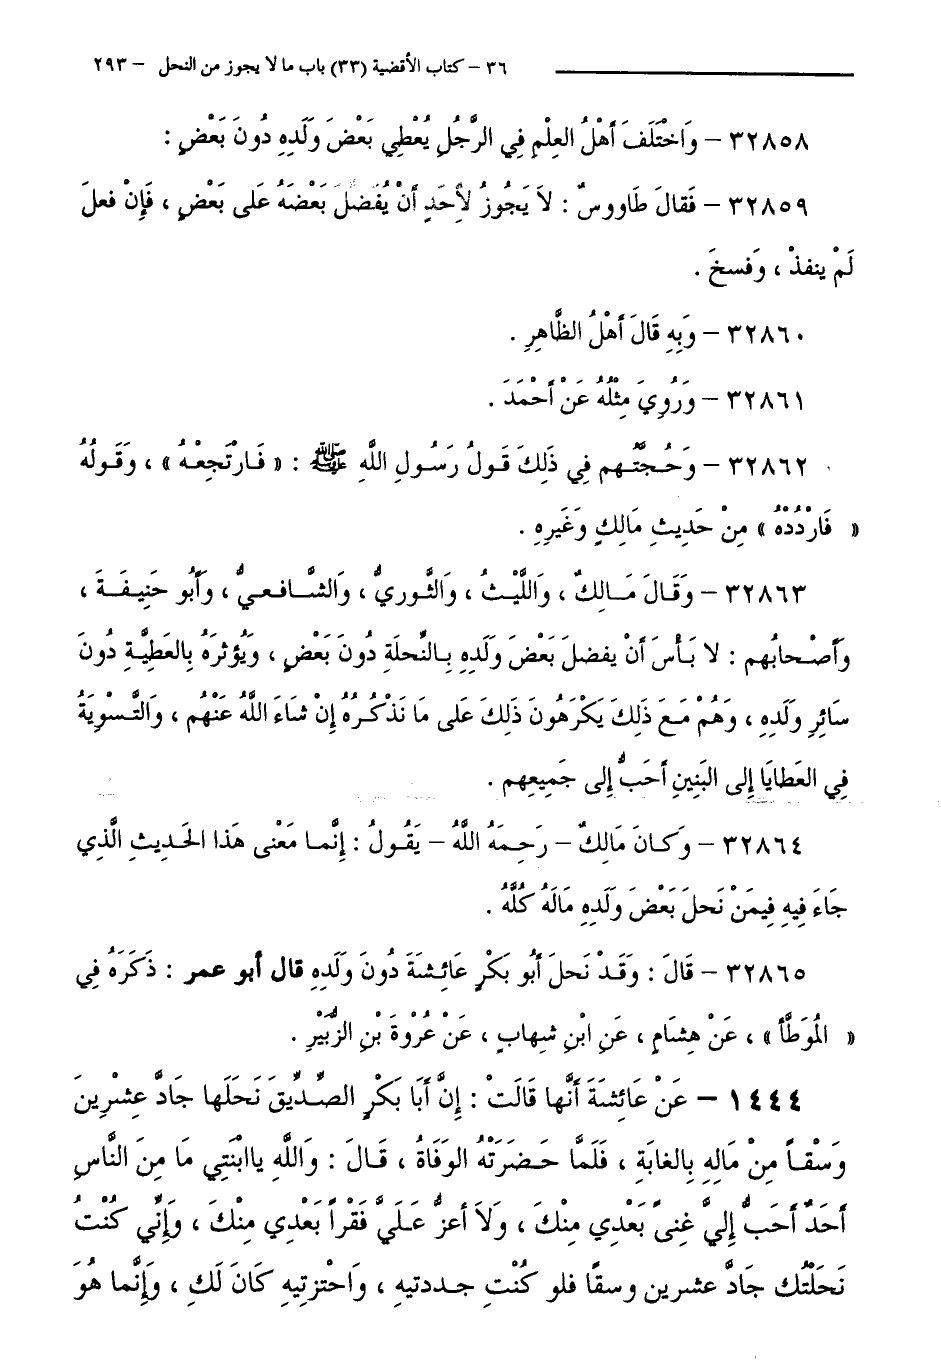 ٣٦ – كتاب الأقضية (٣٣) باب ما لا يجوز من النحل – ٢٩٣
٣٢٨٥٨ – وَاخْتَلَفَ أَهْلُ العِلْمِ فِي الرَّجُلِ يُعْطِي بَعْضَ وَلَدِهِ دُونَ بَعْضٍ :
٣٢٨٥٩ – فَقالَ طَاووسٌ : لاَ يَجُوزُ لأَحَدٍ أَنْ يُفَضِّلَ بَعْضَهُ عَلى بَعْضٍ ، فَإِنْ فعلَ
لَمْ ينفذْ ، وَفسخَ .
٣٢٨٦٠ – وَبِهِ قَالَ أَهْلُ الظَّاهِرِ .
٣٢٨٦١ – وَرُوِيَ مِثْلُهُ عَنْ أَحْمَدَ .
٣٢٨٦٢ – وَحُجَّتُهم فِي ذَلِكَ قَولُ رَسُولِ اللَّهِ ﷺ : « فَارْتَجِعْهُ » ، وَقَولُهُ
« فَارْدُدْهُ » مِنْ حَدِيثِ مَالِكٍ وَغَيرِهِ .
٣٢٨٦٣ – وَقَالَ مَالِكٌ ، وَاللَّيْثُ ، وَالثَّوريُّ ، وَالشَّافعيُّ ، وَأَبُو حَنِيفَةَ ،
وَأَصْحابُهم : لا بَأْسَ أَنْ يفضلَ بَعْضَ وَلَدِهِ بِالنُّحلَةِ دُونَ بَعْضٍ ، وَيُؤثرَهُ بِالعَطِيَّةِ دُونَ
سَائِرِ وَلَدِهِ ، وَهُمْ مَعَ ذَلِكَ يَكْرَهُونَ ذَلِكَ عَلى مَا نَذْكُرُهُ إِنْ شاءَ اللَّهُ عَنْهُم ، وَالتَّسويَةُ
فِي العَطَايَا إِلى البَنِينِ أَحَبُّ إِلى جَمِيعِهم .
٣٢٨٦٤ – وَكانَ مَالِكٌ – رَحِمَهُ اللَّهُ – يَقُولُ : إِنَّما مَعْنى هَذا الحَدِيثِ الَّذِي
جَاءَ فِيهِ فِيمَنْ نَحلَ بَعْضَ وَلَدِهِ مَالَهُ كُلَّهُ .
٣٢٨٦٥ – قَالَ : وَقَدْ نَحلَ أَبُو بَكْرٍ عَائِشَةَ دُونَ وَلَدِهِ قال أبو عمر : ذَكَرَهُ فِي
« المُوَطَّأ » ، عَنْ هِشَامٍ ، عَنِ ابْنِ شِهابٍ ، عَنْ عُرْوَةَ بْنِ الزُّبَيْرِ .
١٤٤٤ – عَنْ عَائِشَةَ أَنَّها قَالَتْ : إِنَّ أَبَا بَكْرٍ الصِّدِّيقَ نَحَلَها جَادَّ عشْرِينَ
وَسْقاً مِنْ مَالِهِ بِالغابَةِ ، فَلَمَّا حَضرَتْهُ الوَفَاةُ ، قَالَ : وَاللَّهِ ياابْنَتِي مَا مِنَ النَّاسِ
أَحَدٌ أَحَبُّ إِليَّ غِنىً بَعْدِي منْكَ ، وَلاَ أعزُّ عَلَيَّ فَقْراً بَعْدِي منْكَ ، وَإِنِّي كُنْتُ
نَحَلْتُك جَادَّ عشرين وسقًا فلو كُنْتِ جددتيه ، وَاحْتزتِيهِ كَانَ لَكِ ، وَإِنَّما هُوَ